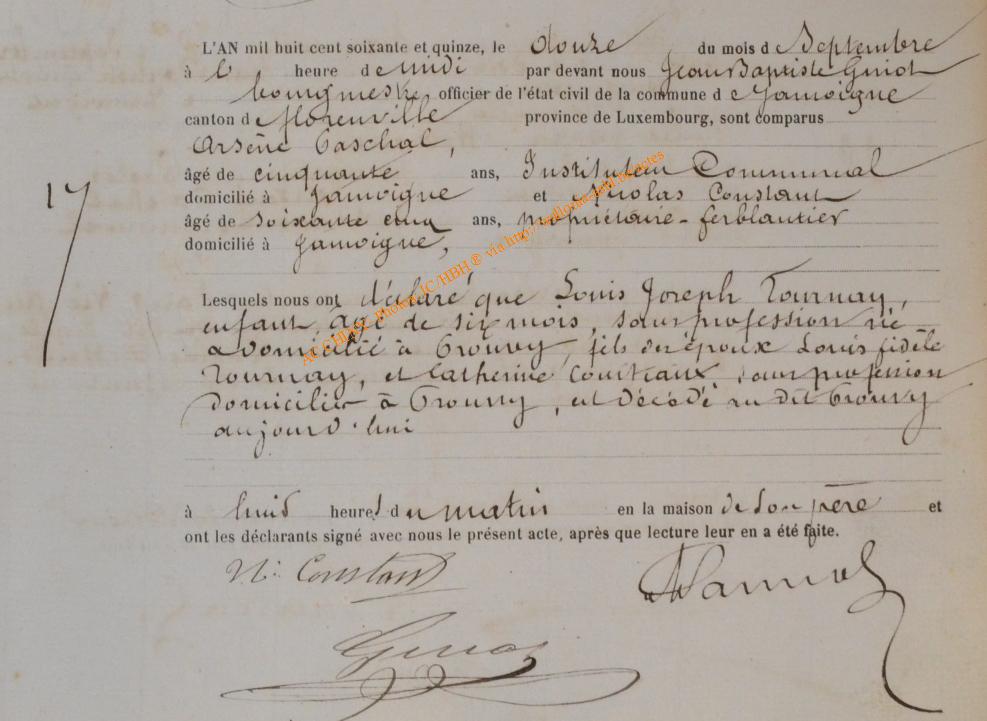 L'AN mil huit cent soixante et quinze, le douze du mois de Septembre
à l' heure de midi par devant nous Jean Baptiste Guiot
bourgmestre, officier de l'état civil de la commune de Jamoigne
canton de florenville province de Luxembourg, sont comparus
Arsène Paschal,
âgé de cinquante ans, Instituteur Communal
domicilié à Jamoigne et Nicolas Constant
âgé de soixante cinq ans, propriétaire - ferblantier
domicilié à Jamoigne,
17
Lesquels nous ont déclaré que Louis Joseph Tournay,
enfant, âgé de six mois, sans profession né
& domicilié à Prouvy, fils des époux Louis fidèle
Tournay, et Catherine sans profession
domiciliés à Prouvy, est décédé au dit Prouvy
aujourd'hui
à huit heures du matin en la maison de son père et
ont les déclarants signé avec nous le présent acte, après que lecture leur en a été faite.
N. Constant
Guiot